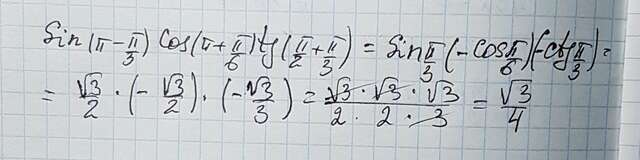 Sin(π - π/3) Cos(π + π/6) tg(π/2 + π/3) = Sin π/3 (-cos π/6)(-ctg π/3) =
= √3/2 · (-√3/2) · (-√3/3) = √3 · √3 · √3 / 2 · 2 · 3 = √3/4